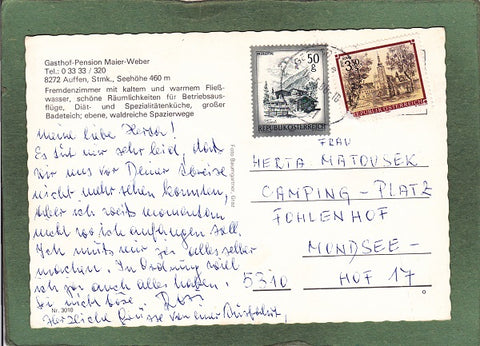 Gasthof-Pension Maier-Weber
Tel.: 0 33 33 / 320
8272 Auffen, Stmk., Seehöhe 460 m
Fremdenzimmer mit kaltem und warmem Fließ-
wasser, schöne Räumlichkeiten für Betriebsaus-
flüge, Diät- und Spezialitätenküche, großer
Badeteich; ebene, waldreiche Spazierwege
meine liebe
Es tut mir sehr leid, daß
wir uns vor Deiner Abreise
nicht mehr sehen konnten,
Aber ich weiß momentan
nicht wo ich anfangen soll.
Ich muß mir ja alles selber
machen. In Ordnung will
ich ja auch alles haben.
Sei nicht böse.
Herzliche Grüsse von einer
Nr. 3010
Foto Baumgartner, Graz
50
g
REPUBLIK ÖSTERREICH
3.50
REPUBLIK ÖSTERREICH
FRAU
HERTA MATOUSEK
CAMPING-PLATZ
FOHLENHOF
MONDSEE-
5310 HOF 17